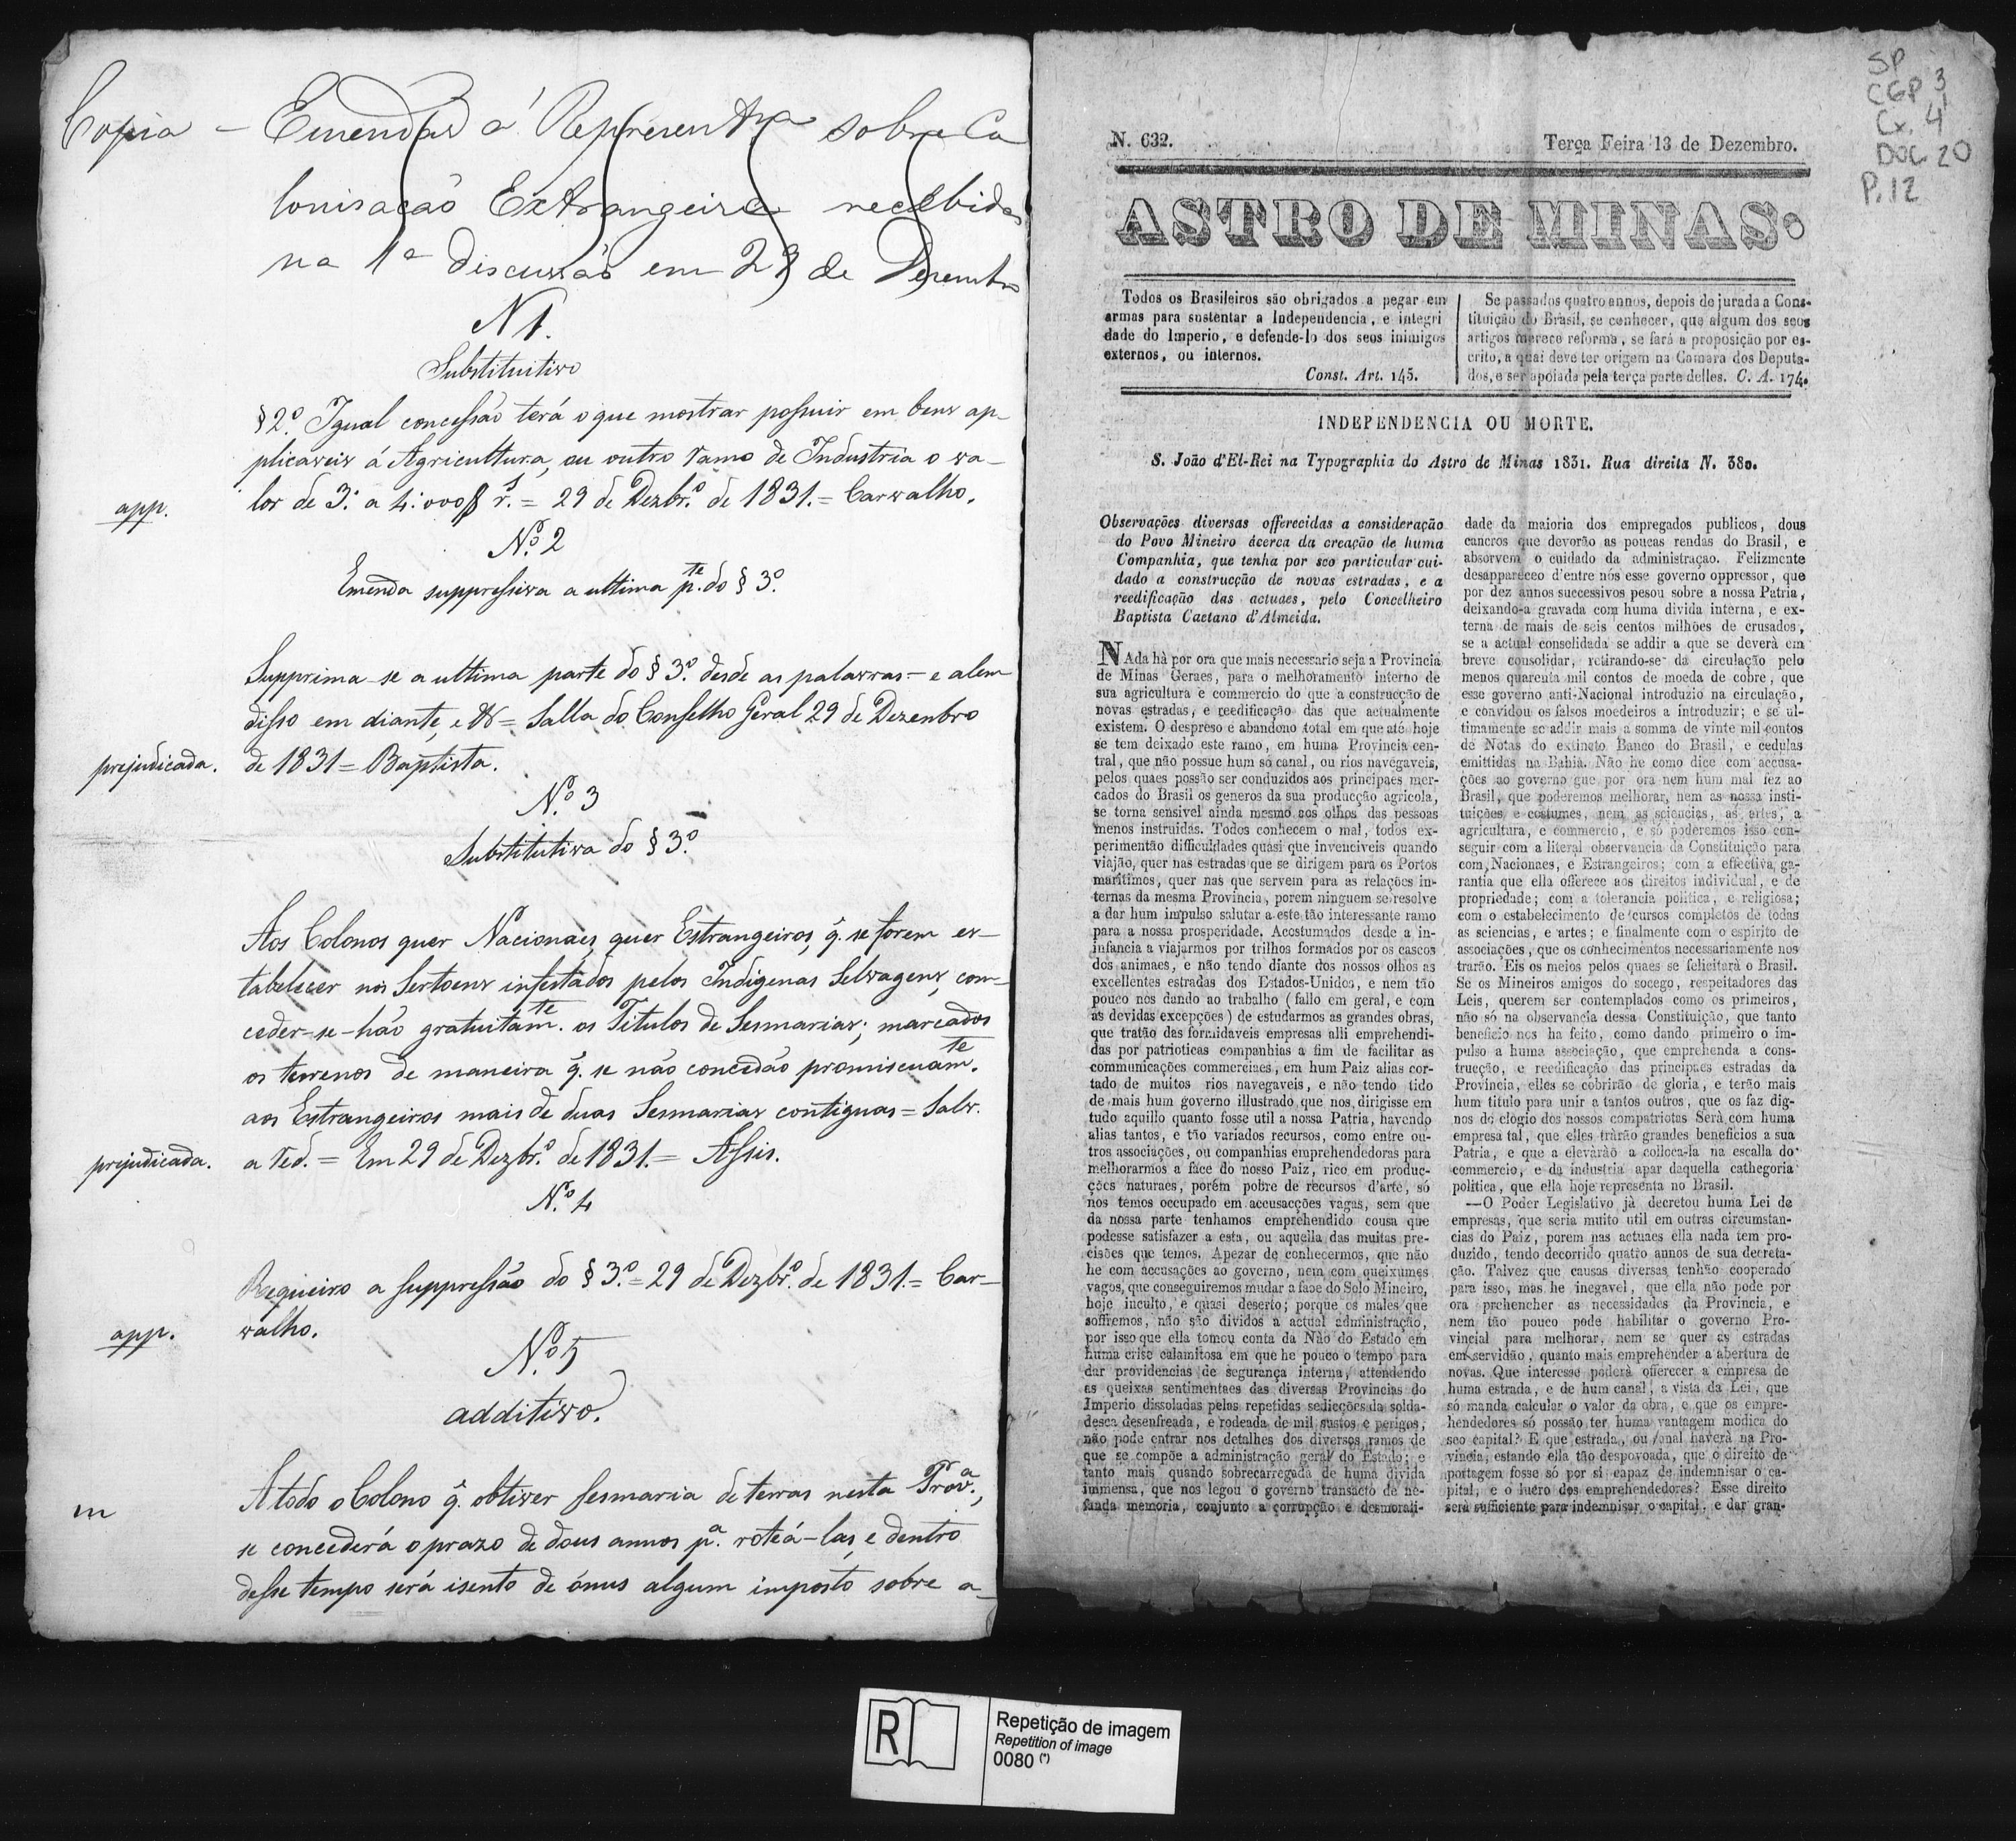 Copia - Emendas á Represent.am sobre Co
lonisação Extrangeira recebidas
na 1ª discussão em 29 de Dezembro
N 1.
Substitutivo
§ 2.º Igual concessão terá o que mostrar possuir em bens ap-
plicaveis á Agricultura, ou outro ramo de Industria o va-
lor de 3: a 4:000$ r.s = 29 de Dezbr.º de 1831. = Carvalho.
app.
N.º 2
Emenda suppressiva a ultima p.te do § 3.º
Supprima-se a ultima parte do § 3.º desde as palavras - e alem
disso em diante, e &c = Salla do Conselho Geral 29 de Dezenbro
de 1831 = Baptista.
prejudicada.
N.º 3
Substitutiva do § 3.º
Aos Colonos quer Nacionaes, quer Estrangeiros, q̃. se forem es-
tabelecer nos Sertoens infestados pelos Indigenas Selvagens, con-
ceder-se-hão gratuitam.te os Titulos de Sesmarias; marcados
os terrenos de maneira q̃. se não concedão promiscuam.te
aos Estrangeiros mais de duas Sesmarias contiguas = Salv.
a red. = Em 29 de Dezbr.º de 1831. = Assis.
prejudicada.
N.º 4
Requeiro a suppressão do § 3.º = 29 de Dezbr.º de 1831. = Car-
valho.
app.
N.º 5
additivo.
A todo o Colono q̃. obtiver sesmaria de terras nesta Prov.ª,
se concederá o prazo de dous annos p.ª roteá-las, e dentro
desse tempo será isento de ónus algum imposto sobre a-
m
SP
CGP 3
Cx. 4
DOC 20
P. 12
N. 632. Terça Feira 13 de Dezembro.
ASTRO DE MINAS.
Todos os Brasileiros são obrigados a pegar em
armas para sustentar a Independencia, e integri
dade do Imperio, e defende-lo dos seos inimigos
externos, ou internos.
Const. Art. 145.
Se passados quatro annos, depois de jurada a Cons-
tituição do Brasil, se conhecer, que algum dos seos
artigos merece reforma, se fará a proposição por es-
crito, a qual deve ter origem na Camara dos Deputa-
dos, e ser apoiada pela terça parte delles. C. A. 174.
INDEPENDENCIA OU MORTE.
S. João d'El-Rei na Typographia do Astro de Minas 1831. Rua direita N. 380.
Observações diversas offerecidas a consideração
do Povo Mineiro ácerca da creação de huma
Companhia, que tenha por seo particular cui-
dado a construcção de novas estradas, e a
reedificação das actuaes, pelo Concelheiro
Baptista Caetano d'Almeida.
NAda hà por ora que mais necessario seja a Provincia
de Minas Geraes, para o melhoramento interno de
sua agricultura e commercio do que a construcção de
novas estradas, e reedificação das que actualmente
existem. O despreso e abandono total em que até hoje
se tem deixado este ramo, em huma Provincia cen-
tral, que não possue hum só canal, ou rios navegaveis,
pelos quaes possão ser conduzidos aos principaes mer-
cados do Brasil os generos da sua producção agricola,
se torna sensivel ainda mesmo aos olhos das pessoas
menos instruidas. Todos conhecem o mal, todos ex-
perimentão difficuldades quasi que invenciveis quando
viajão, quer nas estradas que se dirigem para os Portos
maritimos, quer nas que servem para as relações in-
ternas da mesma Provincia, porem ninguem se resolve
a dar hum impulso salutar a este tão interessante ramo
para a nossa prosperidade. Acostumados desde a in-
infancia a viajarmos por trilhos formados por os cascos
dos animaes, e não tendo diante dos nossos olhos as
excellentes estradas dos Estados-Unidos, e nem tão
pouco nos dando ao trabalho (fallo em geral, e com
as devidas excepções) de estudarmos as grandes obras,
que tratão das formidaveis empresas alli emprehendi-
das por patrioticas companhias a fim de facilitar as
communicações commerciaes, em hum Paiz alias cor-
tado de muitos rios navegaveis, e não tendo tido
de mais hum governo illustrado que nos dirigisse em
tudo aquillo quanto fosse util a nossa Patria, havendo
alias tantos, e tão variados recursos, como entre ou-
tros associações, ou companhias emprehendedoras para
melhorarmos a face do nosso Paiz, rico em produc-
ções naturaes, porém pobre de recursos d'arte, só
nos temos occupado em accusacções vagas, sem que
da nossa parte tenhamos emprehendido cousa que
podesse satisfazer a esta, ou aquella das muitas pre-
cisões que temos. Apezar de conhecermos, que não
he com accusações ao governo, nem com queixumes
vagos, que conseguiremos mudar a face do Solo Mineiro,
hoje inculto, e quasi deserto; porque os males que
soffremos, não são dividos a actual administração,
por isso que ella tomou conta da Não do Estado em
huma crise calamitosa em que he pouco o tempo para
dar providencias de segurança interna, attendendo
as queixas sentimentaes das diversas Provincias do
Imperio dissoladas pelas repetidas sedicções da solda-
desca desenfreada, e rodeada de mil sustos e perigos,
não pode entrar nos detalhes dos diversos ramos de
que se compõe a administração geral do Estado; e
tanto mais quando sobrecarregada de huma divida
immensa, que nos legou o governo transacto de ne-
fanda memoria, conjunto a corrupção e desmorali-
dade da maioria dos empregados publicos, dous
cancros que devorão as poucas rendas do Brasil, e
absorvem o cuidado da administração. Felizmente
desappareceo d'entre nós esse governo oppressor, que
por dez annos successivos pesou sobre a nossa Patria,
deixando-a gravada com huma divida interna, e ex-
terna de mais de seis centos milhões de crusados,
se a actual conselidada se addir a que se deverà em
breve consolidar, retirando-se da circulação pelo
menos quarenta mil contos de moeda de cobre, que
esse governo anti-Nacional introduzio na circulação,
e convidou os falsos moedeiros a introduzir; e se ul-
timamente se addir mais a somma de vinte mil contos
de Notas do extincto Banco do Brasil, e cedulas
emittidas na Bahia. Não he como dice com accusa-
ções ao governo que por ora nem hum mal fez ao
Brasil, que poderemos melhorar, nem as nossa insti-
tuições e costumes, nem as sciencias, as artes, a
agricultura, e commercio, e só poderemos isso con-
seguir com a literal observancia da Constituição para
com Nacionaes, e Estrangeiros; com a effectiva ga-
rantia que ella offerece aos direitos individual, e de
propriedade; com a tolerancia politica, e religiosa;
com o estabelecimento de cursos completos de todas
as sciencias, e artes; e finalmente com o espirito de
associações, que os conhecimentos necessariamente nos
trarão. Eis os meios pelos quaes se felicitarà o Brasil.
Se os Mineiros amigos do socego, respeitadores das
Leis, querem ser contemplados como os primeiros,
não só na observancia dessa Constituição, que tanto
beneficio nos ha feito, como dando primeiro o im-
pulso a huma associação, que emprehenda a cons-
trucção, e reedificação das principaes estradas da
Provincia, elles se cobrirão de gloria, e terão mais
hum titulo para unir a tantos outros, que os faz dig-
nos do elogio dos nossos compatriotas Será com huma
empresa tal, que elles trarão grandes beneficios a sua
Patria, e que a elevàrão a colloca-la na escalla do
commercio, e da industria apar daquella cathegoria
politica, que ella hoje representa no Brasil.
—O Poder Legislativo jà decretou huma Lei de
empresas, que seria muito util em outras circumstan-
cias do Paiz, porem nas actuaes ella nada tem pro-
duzido, tendo decorrido quatro annos de sua decreta-
ção. Talvez que causas diversas tenhão cooperado
para isso, mas he inegavel, que ella não pode por
ora prehencher as necessidades da Provincia, e
nem tão pouco pode habilitar o governo Pro-
vincial para melhorar, nem se quer as estradas
em servidão, quanto mais emprehender a abertura de
novas. Que interesse poderà offerecer a empresa de
huma estrada, e de hum canal, a vista da Lei, que
só manda calcular o valor da obra, e que os empre-
hendedores só possão ter huma vantagem modica do
seo capital? E que estrada, ou canal haverà na Pro-
vincia, estando ella tão despovoada, que o direito de
portagem fosse só por si capaz de indemnisar o ca-
pital, e o lucro dos emprehendedores? Esse direito
serà sufficiente para indemnisar o capital, e dar gran-
R
Repetição de imagem
Repetition of image
0080 (*)